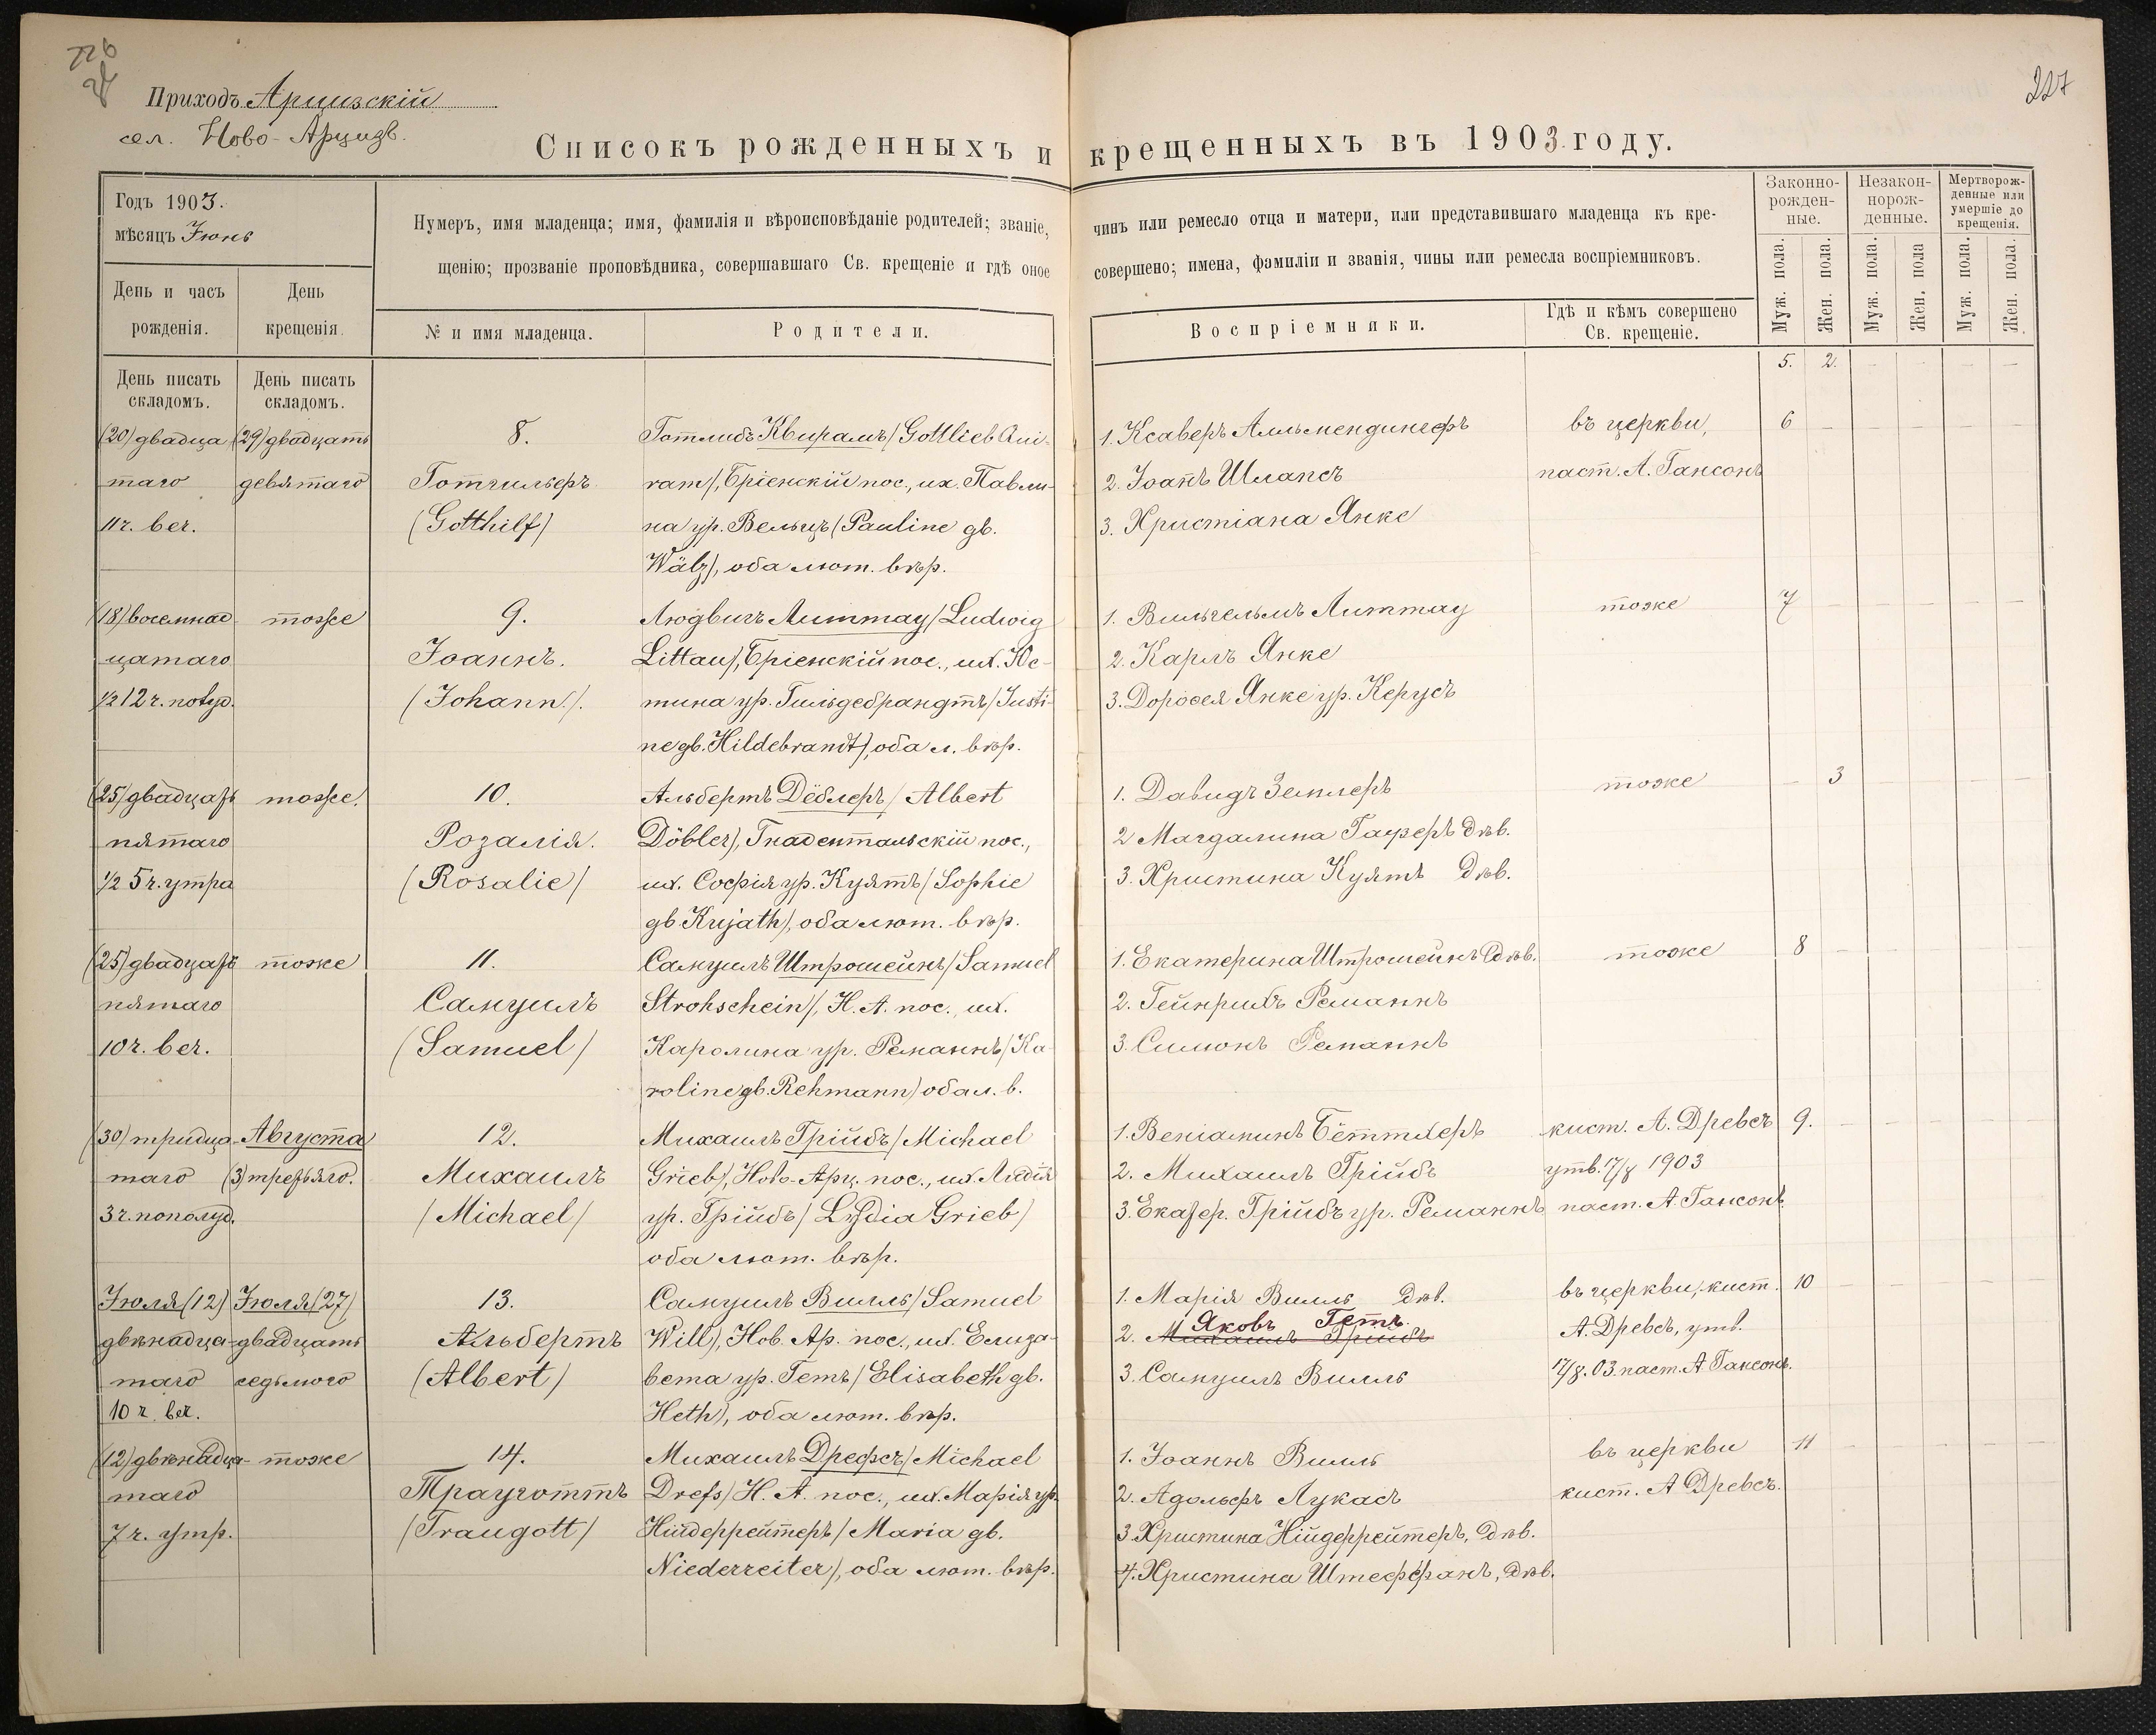 226
227
Приходъ Арцизскій
сел. Ново-Арцизъ.
Списокъ рожденныхъ и крещенныхъ въ 1903 году.
Годъ 1903.
мѣсяцъ Іюнь
День и часъ рожденія.
День крещенія.
Нумеръ, имя младенца; имя, фамилія и вѣроисповѣданіе родителей; званіе, чинъ или ремесло отца и матери, или представившаго младенца къ кре-
щенію; прозваніе проповѣдника, совершавшаго Св. крещеніе и гдѣ оное совершено; имена, фамиліи и званія, чины или ремесла воспріемниковъ.
№ и имя младенца.
Родители.
Воспріемники.
Гдѣ и кѣмъ совершено Св. крещеніе.
Законно-рожден-ные.
Незакон-норож-денные.
Мертворож-денные или умершіе до крещенія.
Муж. пола.
Жен. пола.
Муж. пола.
Жен. пола
Муж. пола.
Жен. пола.
День писать складомъ.
День писать складомъ.
5. 2. — — — —
(20) двадца-
таго
11 ч. веч.
(29) двадцать
девятаго
8.
Готгильфъ
(Gotthilf)
Готлибъ Квирамъ (Gottlieb Qui-
ram), Бріенскій пос., их. Павли-
на ур. Вельцъ (Pauline gb.
Wälz), оба лют. вѣр.
1. Ксаверъ Алльмендингеръ
2. Іоаннъ Шлапсъ
3. Христіана Янке
въ церкви,
паст. А. Гансонъ
6 — — — — —
(18) восемнад-
цатаго
1/2 12 ч. полуд.
тоже
9.
Іоаннъ.
(Johann).
Людвигъ Литтау (Ludwig
Littau), Бріенскій пос., их. Юс-
тина ур. Гильдебрандтъ (Justi-
ne gb. Hildebrandt), оба л. вѣр.
1. Вильгельмъ Литтау
2. Карлъ Янке
3. Доровея Янке ур. Керусъ
тоже
7 — — — — —
(25) двадцать
пятаго
1/2 5 ч. утра
тоже.
10.
Розалія.
(Rosalie)
Альбертъ Дёблеръ (Albert
Döbler), Гнаденталь­скій пос.,
их. Софія ур. Куятъ (Sophie
gb Kujath), оба лют. вѣр.
1. Давидъ Земмлеръ
2 Магдалина Гауферъ Дѣв.
3. Христина Куятъ Дѣв.
тоже
— 3 — — — —
(25) двадцать
пятаго
10 ч. веч.
тоже
11.
Самуилъ
(Samuel)
Самуилъ Штрошейнъ (Samuel
Strohschein), Н. А. пос., их.
Каролина ур. Реманнъ (Ka-
roline gb. Rehmann) оба л. в.
1. Екатерина Штрошейнъ Дѣв.
2. Гейнрихъ Реманнъ
3. Симонъ Реманнъ
тоже
8 — — — — —
(30) тридца-
таго
3 ч. пополуд.
Августа
(3) третьяго.
12.
Михаилъ
(Michael)
Михаилъ Грійбъ (Michael
Grieb), Ново-Арц. пос., их. Лидія
ур. Грійбъ (Lydia Grieb)
оба лют. вѣр.
1. Веніаминъ Бёттхеръ
2. Михаилъ Грійбъ
3. Екатер. Грійбъ ур. Реманнъ
кист. А. Древсъ
утв. 17/8 1903
паст. А. Гансонъ.
9. — — — — —
Іюля (12)
двѣнадца-
таго
10 ч. веч.
Іюля (27)
двадцать
седьмого
13.
Альбертъ
(Albert)
Самуилъ Вилль (Samuel
Will), Нов. Ар. пос., их. Елиза-
вета ур. Гетъ (Elisabeth gb.
Heth), оба лют. вѣр.
1. Марія Вилль Дѣв.
Яковъ Гетъ.
2. Михаилъ Грийбъ
3. Самуилъ Вилль
въ церкви, кист.
А. Древсъ, утв.
17/8. 03. паст. А. Гансонъ.
10 — — — — —
(12) двѣнадца-
таго
7 ч. утр.
тоже
14.
Трауготтъ
(Traugott)
Михаилъ Дрефсъ (Michael
Drefs) Н. А. пос., их. Марія ур.
Нійдеррейтеръ (Maria gb.
Niederreiter), оба лют. вѣр.
1. Іоаннъ Вилль
2. Адольфъ Лукасъ
3. Христина Нійдеррейтеръ, Дѣв.
4. Христина Штеффанъ, Дѣв.
въ церкви
кист. А Древсъ.
11 — — — — —